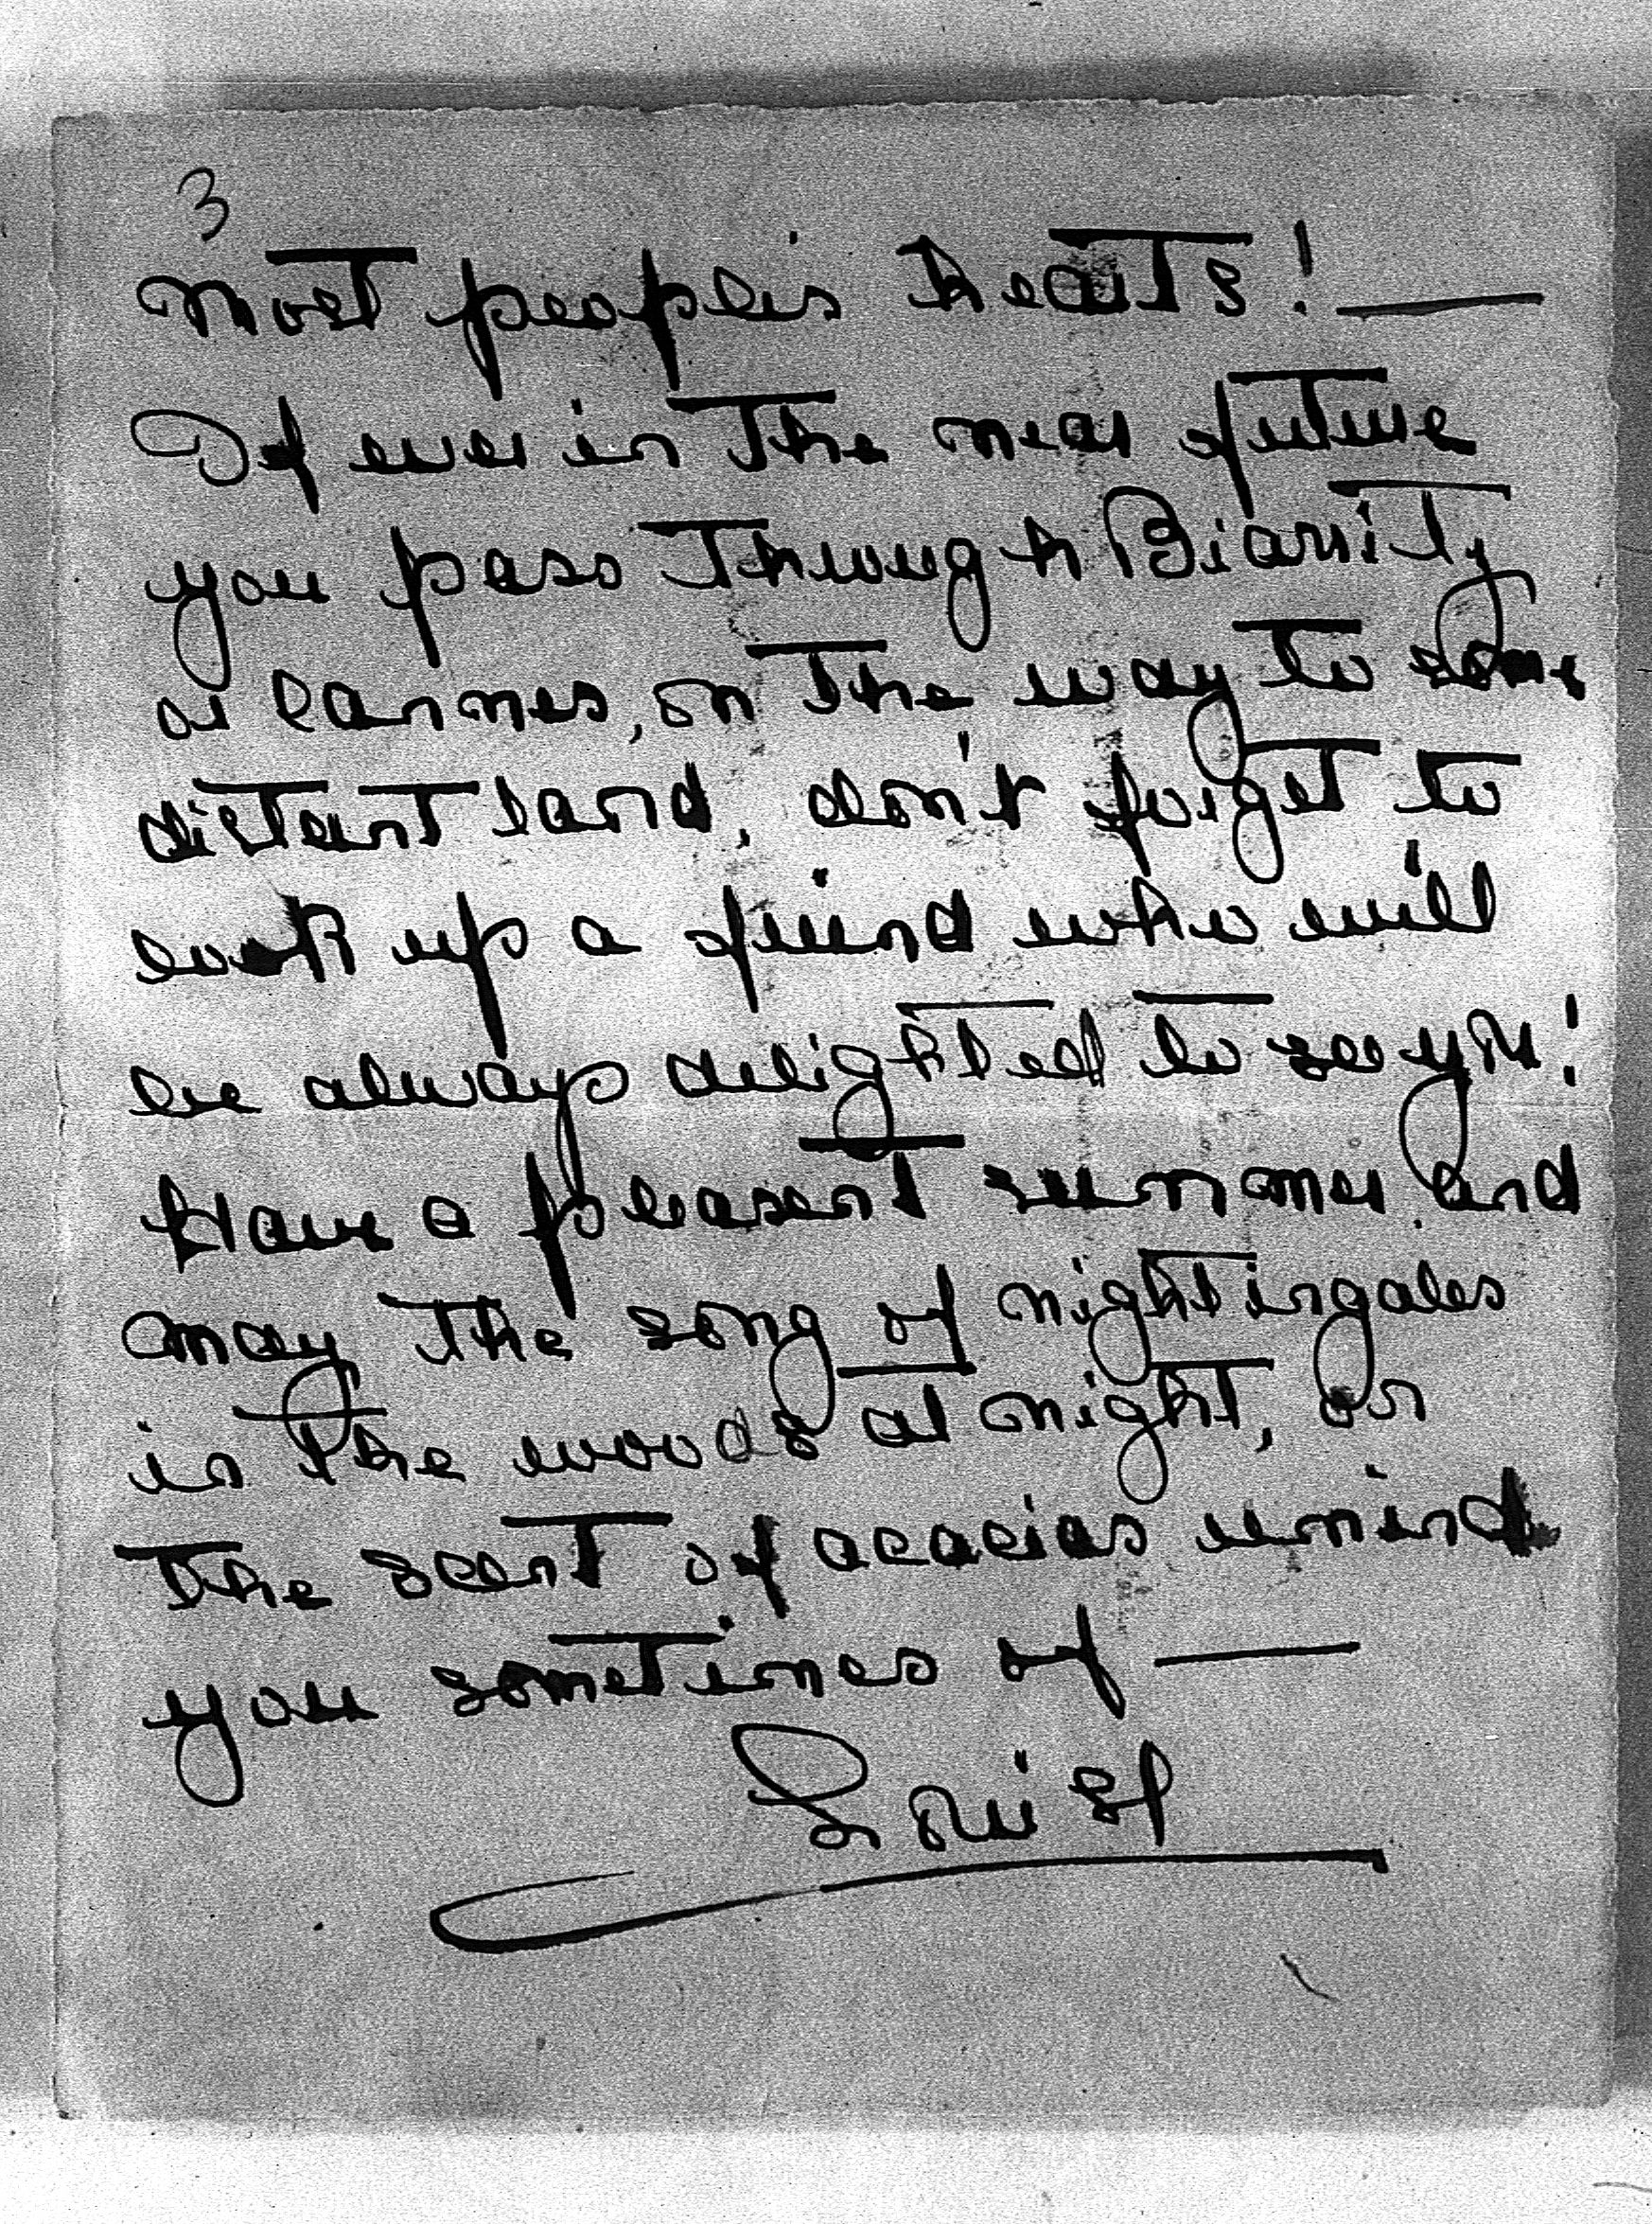 3
most people's hearts! —
If ever in the near future
you pass through Biarritz
or Cannes, on the way to some
distant land, don't forget to
look up a friend who will
be always delighted to see you!
Have a pleasant summer and
may the song of nightingales
in the woods at night, or
the scent of acacias remind
you sometimes of —